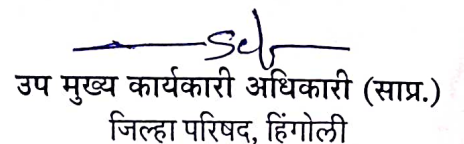 उप मुख्य कार्यकारी अधिकारी (साप्र.)
जिल्हा परिषद, हिंगोली